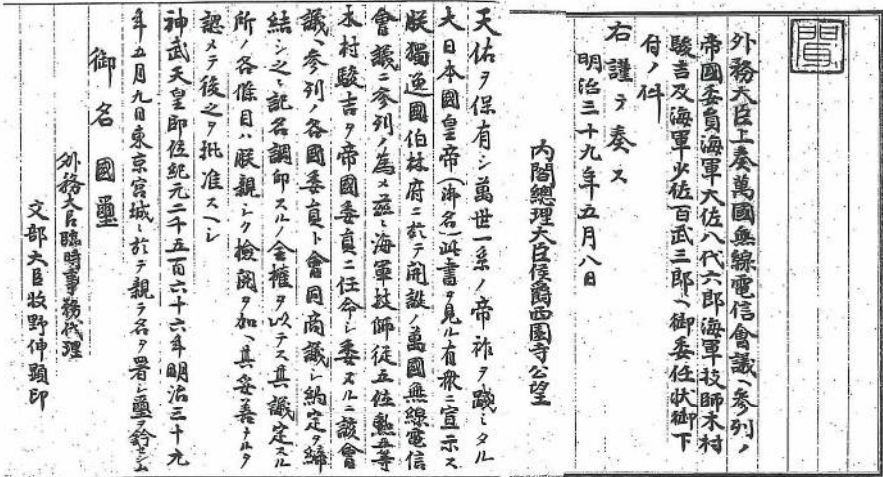 覧
外務大臣上奏萬國無線電信會議ヘ參列ノ
帝國委員海軍大佐八代六郎海軍技師木村
駿吉及海軍少佐百武三郎ヘ御委任状御下
付ノ件
右謹テ奏ス
明治三十九年五月八日
内閣總理大臣侯爵西園寺公望
天佑ヲ保有シ萬世一系ノ帝祚ヲ踐ミタル
大日本國皇帝(御名)此書ヲ見ル有衆ニ宣示ス
朕獨逸國伯林府ニ於テ開設ノ萬國無線電信
會議ニ參列ノ為メ茲ニ海軍技師従五位勲五等
木村駿吉ヲ帝國委員ニ任命シ委スルニ該會
議ヘ參列ノ各國委員ト會同商議シ約定ヲ締
結シ之ニ記名調印スルノ全權ヲ以テス其議定スル
所ノ各條目ハ朕親シク檢閲ヲ加ヘ其妥善ナルヲ
認メテ後之ヲ批准スヘシ
神武天皇即位紀元二千五百六十六年明治三十九
年五月九日東京宮城ニ於テ親ラ名ヲ署シ璽ヲ鈐セシム
御名國璽
外務大臣臨時事務代理
文部大臣牧野伸顕印